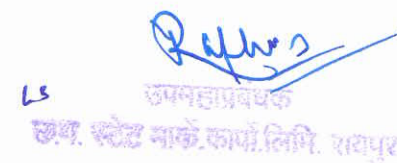 LS
उपमहाप्रबंधक
छ.ग. स्टेट मार्के. कार्पो. लिमि. रायपुर